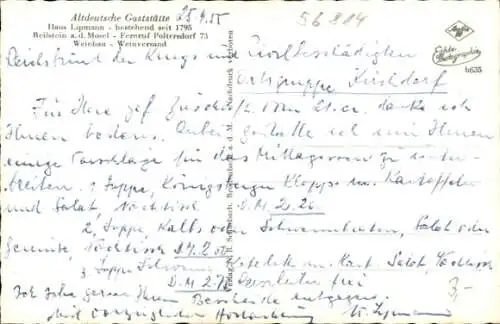 Altdeutsche Gaststätte
Hans Lipmann - bestehend seit 1795
Beilstein a.d. Mosel - Fernruf Poltersdorf 73
Weinbau - Weinversand
25.4.55
56804
Echte Photographie
b635
Reichsbund der Kriegs und Zivilbeschädigten
Ortsgruppe Kirchdorf
Für Ihre gef. Zuschrift vom 21. cr. danke ich
Ihnen bestens. Anbei gestatte ich mir Ihnen
einige Vorschläge für das Mittagessen zu unter-
breiten. 1 Suppe, Königsberger Klopse m. Kartoffeln
und Salat Nachtisch D.M 2.20.
2, Suppe, Kalbs oder Schweinebraten, Salat oder
Gemüse, Nachtisch D.M 2.50
3 Suppe Schweinekotelett m. Kart. Salat, Nachtisch
D.M 2.75 frei
3,-
Ich sehe gerne Ihrem Bescheide entgegen.
Mit vorzüglicher Hochachtung H. Lipmann